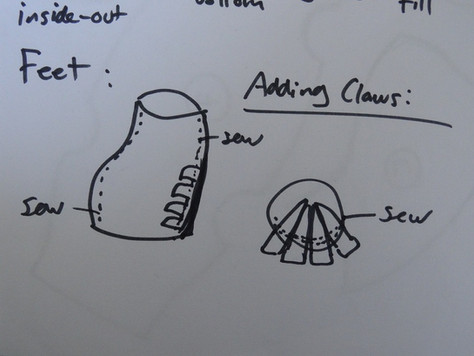 inside-out
bottom
fill
Feet:
Adding Claws:
sew
sew
sew